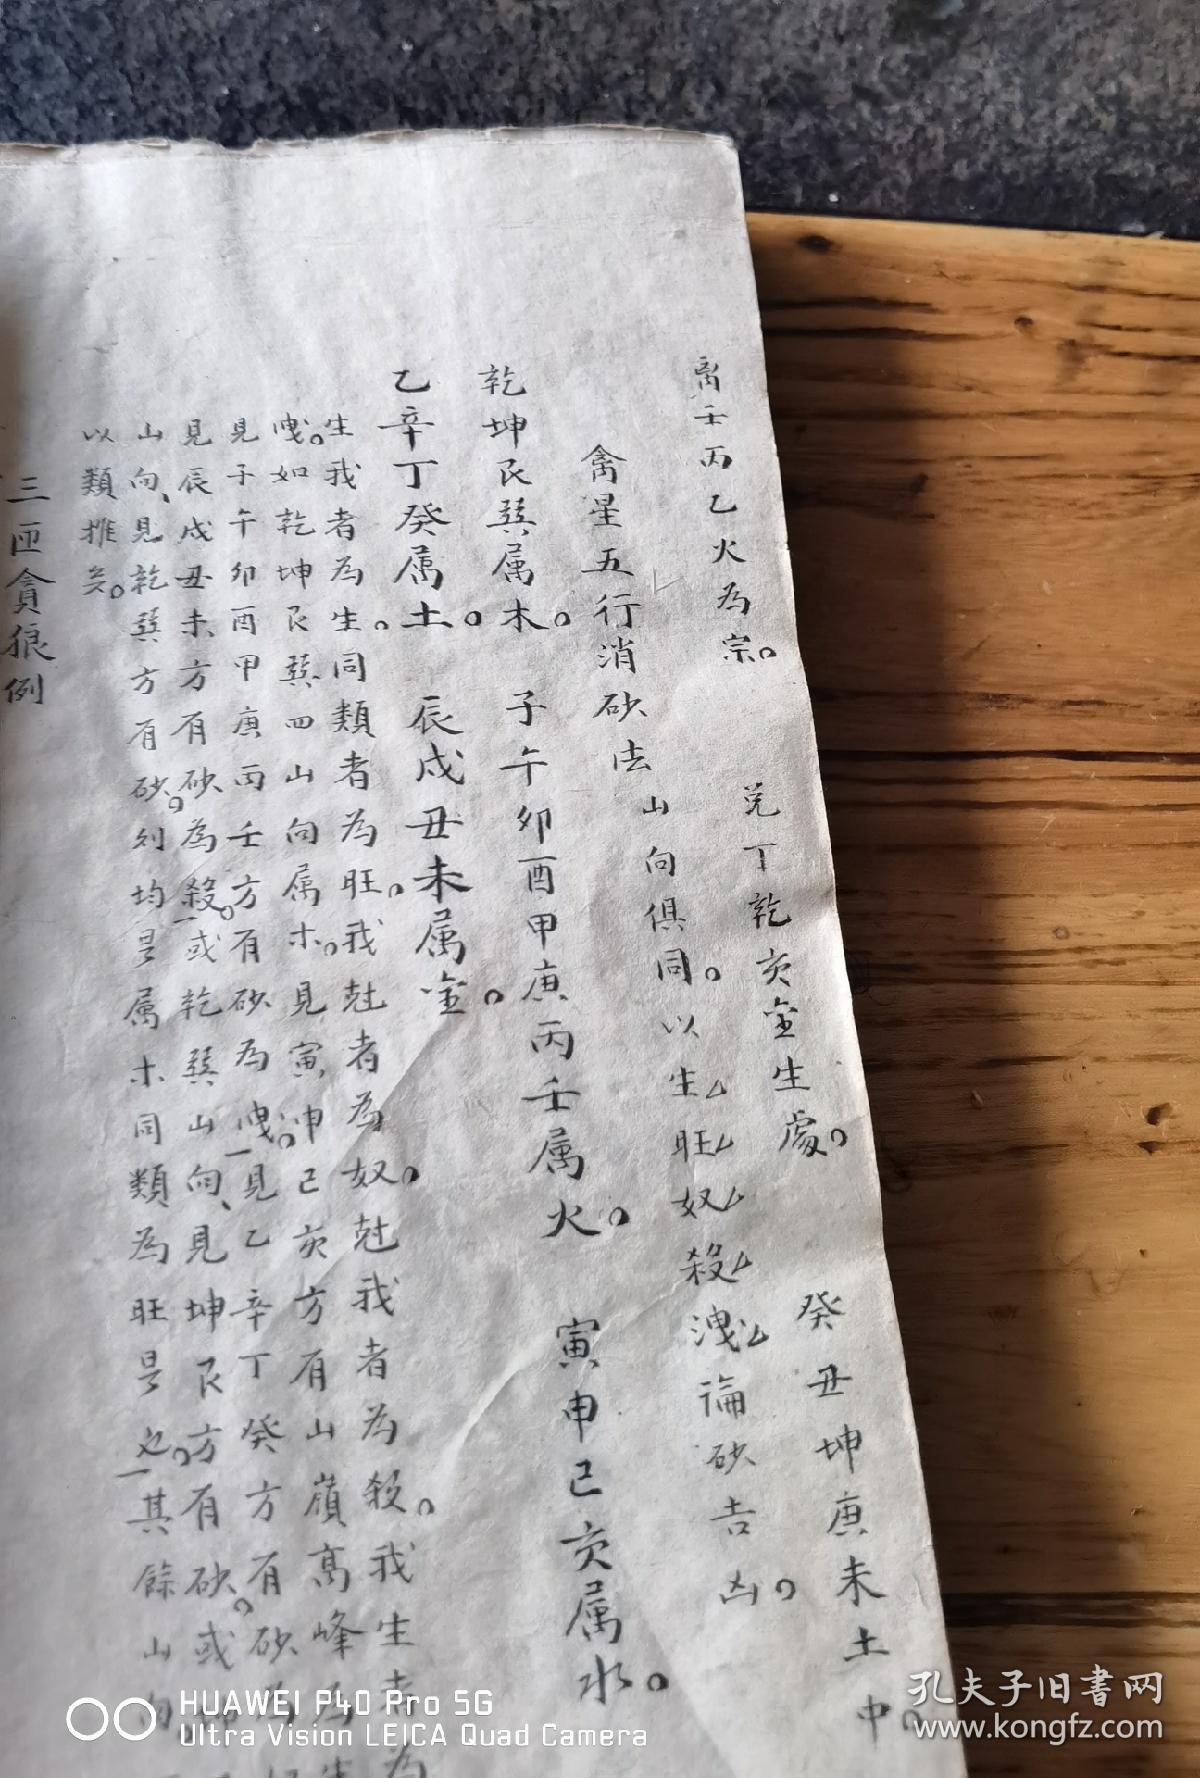 离壬丙乙火為宗。兌丁乾亥金生處。癸丑坤庚未土中。
禽星五行消砂法 山向俱同。以生旺奴殺洩論砂吉凶。
乾坤艮巽属木。子午卯酉甲庚丙壬属火。寅申巳亥属水。
乙辛丁癸属土。辰戌丑未属金。
生我者為生。同類者為旺。我尅者為奴。尅我者為殺。我生者為
洩。如乾坤艮巽四山向属木。見寅申巳亥方有山嶺高峰為生
見子午卯酉甲庚丙壬方有砂為洩。見乙辛丁癸方有砂為
見辰戌丑未方有砂為殺。或乾巽山向、見坤艮方有砂。或
山向、見乾巽方有砂。列均是属木同類為旺是也。其餘山向
以類推矣。
三匝貪狼例
HUAWEI P40 Pro 5G
Ultra Vision LEICA Quad Camera
孔夫子旧書网
www.kongfz.com